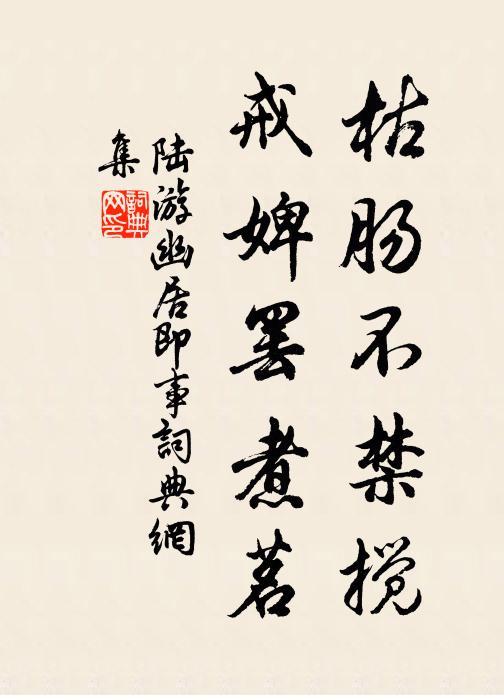 枯肠不禁搅
戒婢罢煮茗
陆游幽居即事词典網
集
詞典
网印